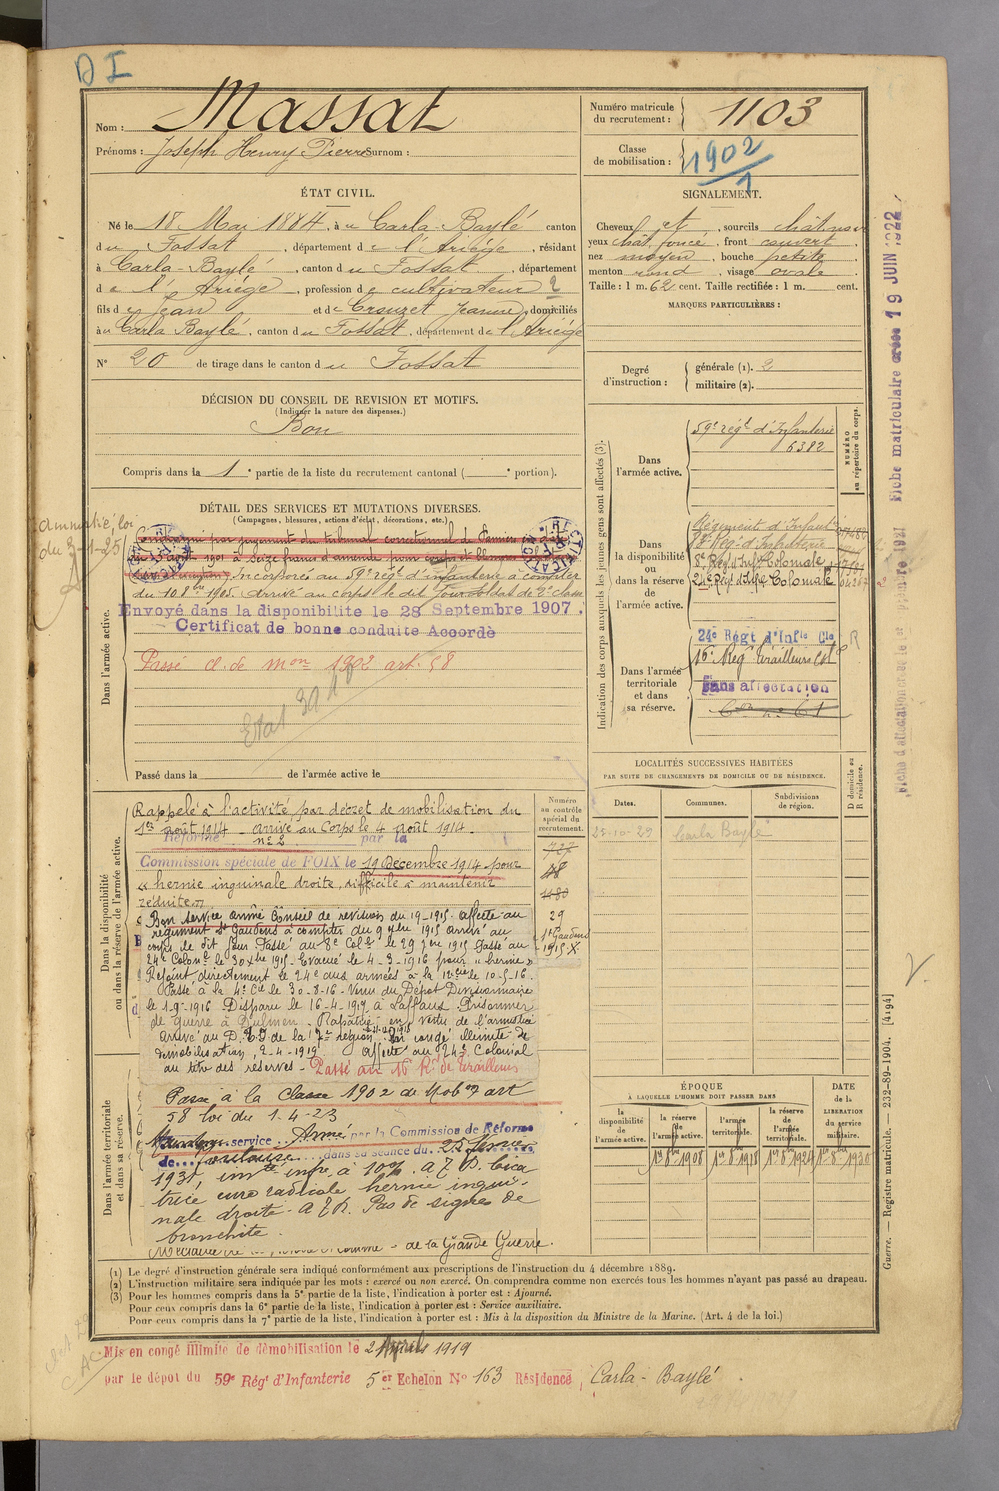 D I
Nom : Massat
Prénoms : Joseph Henry Pierre Surnom :
Numéro matricule du recrutement : 1103
Classe de mobilisation : 1902/1
ÉTAT CIVIL.
Né le 18 Mai 1884, à Carla-Baylé canton
du Fossat, département de l'Ariège, résidant
à Carla-Baylé, canton du Fossat, département
de l'Ariège, profession de cultivateur 2
fils de Jean et de Crouzet Jeanne, domiciliés
à Carla Baylé, canton du Fossat, département de l'Ariège
N° 20 de tirage dans le canton du Fossat
SIGNALEMENT.
Cheveux et, sourcils châtains
yeux chât. foncé, front couvert
nez moyen, bouche petite
menton rond, visage ovale
Taille : 1 m. 62 cent. Taille rectifiée : 1 m. cent.
MARQUES PARTICULIÈRES :
Degré d'instruction : générale (1). 2
militaire (2).
DÉCISION DU CONSEIL DE REVISION ET MOTIFS.
(Indiquer la nature des dispenses.)
Bon
Compris dans la 1e partie de la liste du recrutement cantonal ( e portion).
DÉTAIL DES SERVICES ET MUTATIONS DIVERSES.
(Campagnes, blessures, actions d'éclat, décorations, etc.)
Amnistié, loi
du 3-1-25
Dans l'armée active.
par jugement du tribunal correctionnel de Pamiers
à seize francs d'amende pour coups et blessures
Incorporé au 59e régt d'infanterie à compter
du 10 8bre 1905. Arrivé au corps le dit jour. Soldat de 2e classe
Envoyé dans la disponibilité le 28 Septembre 1907.
Certificat de bonne conduite Accordé
Passé cl. de mon 1902 art. 58
Etat
Passé dans la de l'armée active le
Indication des corps auxquels les jeunes gens sont affectés (3).
NUMÉRO au répertoire du corps.
Dans l'armée active.
59e regt d'Infanterie
6382
Dans la disponibilité ou dans la réserve de l'armée active.
Régiment d'Infant
8e Régt d'Infie Coloniale
24e Régt d'Infie Coloniale
Dans l'armée territoriale et dans sa réserve.
24e Régt d'Infie Cle R
16e Regt Tirailleurs Col
Sans affectation
Fiche matriculaire créée 19 JUIN 1922
LOCALITÉS SUCCESSIVES HABITÉES
PAR SUITE DE CHANGEMENTS DE DOMICILE OU DE RÉSIDENCE.
Dates. Communes. Subdivisions de région. D domicile ou R résidence.
Carla Baylé
Dans la disponibilité ou dans la réserve de l'armée active.
Numéro au contrôle spécial du recrutement.
727
48
1180
29
St Gaudens
1915
Rappelé à l'activité par décret de mobilisation du
1er août 1914 - arrivé au corps le 4 août 1914.
Réformé n° 2 par la
Commission spéciale de FOIX le 19 Décembre 1914 pour
" hernie inguinale droite, difficile à maintenir
réduite "
Bon service armé Conseil de revision du 19-1915. Affecté au
régiment St Gaudens à compter du 9 7bre 1915 arrivé au
corps le dit jour. Passé au 8e Colal le 29 7bre 1915 Passé au
24e Colonial le 30 Xbre 1915 - Evacué le 4-3-1916 pour " hernie "
Rejoint directement le 24e aux armées à la 11e Cie le 10-5-16.
Passé à la 4e Cie le 30-8-16 - Venu du Dépôt Divisionnaire
le 1-9-1916 Disparu le 16-4-1917 à Laffaux - Prisonnier
de guerre à Dulmen - Rapatrié en vertu de l'armistice
arrivé au D. de la 17e région en congé illimité de
démobilisation, 2-4-1919 Affecté au 24e Colonial
au titre des réserves - Passé au 16e Rt de Tirailleurs
Dans l'armée territoriale et dans sa réserve.
Passé à la Classe 1902 de Mobon art
58 loi du 1.4-23
service Armé par la Commission de Réforme
de Toulouse dans sa séance du 25 Février
1931, imté infre à 10%. A.T.D. Cica
trice cure radicale hernie ingui-
nale droite - A.E.R. Pas de signes de
bronchite.
de la Grande Guerre.
ÉPOQUE
À LAQUELLE L'HOMME DOIT PASSER DANS
la disponibilité de l'armée active. la réserve de l'armée active. l'armée territoriale. la réserve de l'armée territoriale.
DATE de la LIBÉRATION du service militaire.
1er 8bre 1908 1er 8bre 1918 1er 8bre 1924 1er 8bre 1930
Guerre. — Registre matricule. — 232-89-1904. [4194]
(1) Le degré d'instruction générale sera indiqué conformément aux prescriptions de l'instruction du 4 décembre 1889.
(2) L'instruction militaire sera indiquée par les mots : exercé ou non exercé. On comprendra comme non exercés tous les hommes n'ayant pas passé au drapeau.
(3) Pour les hommes compris dans la 5e partie de la liste, l'indication à porter est : Ajourné.
Pour ceux compris dans la 6e partie de la liste, l'indication à porter est : Service auxiliaire.
Pour ceux compris dans la 7e partie de la liste, l'indication à porter est : Mis à la disposition du Ministre de la Marine. (Art. 4 de la loi.)
Mis en congé illimité de démobilisation le 2 Avril 1919
par le dépôt du 59e Régt d'Infanterie 5er Echelon N° 163 Résidence, Carla-Baylé.